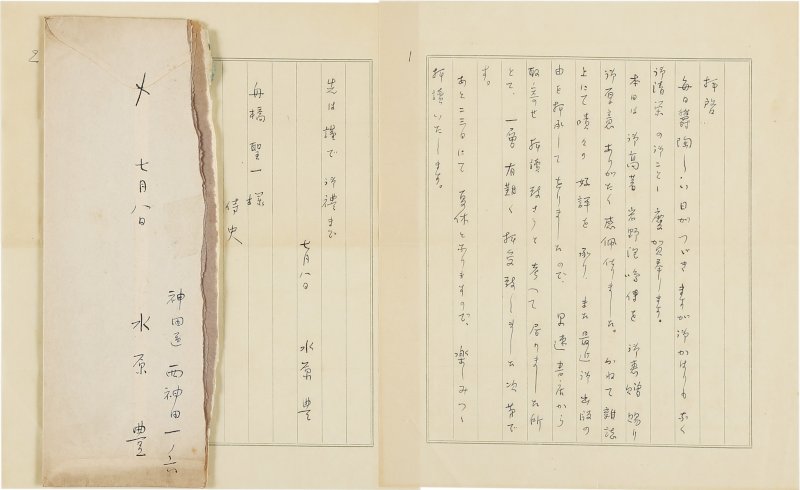 1
拝啓
毎日鬱陶しい日がつゞきますが御かはりもなく
御清栄の御こと〻慶賀奉ります。
本日は御高著岩野泡鳴伝を御恵贈賜り
御厚意ありがたく感佩侍りました。かねて雑誌
上にて嘖々の好評を承り、また最近御出版の
由を拝承してをりましたので、早速書店から
取寄せ拝讀致さうと考へて居りました所
とて、一層有難く拝受致しました次第で
す。
あと二三日にて夏休となりますので、楽しみつゝ
拝讀いたします。
2
先は謹で御禮まで
七月八日 水原豊
舟橋聖一様
侍史
神田区西神田一ノ六
水原豊
〆 七月八日